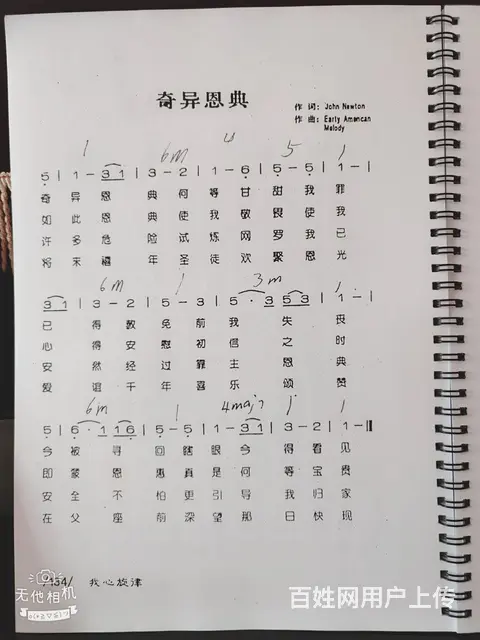 奇异恩典
作 词: John Newton
作 曲: Early American
Melody
1 6m 4 5 1
5 | 1 - 3 1 | 3 - 2 | 1 - 6 | 5 - 5 | 1 - |
奇 异 恩 典 何 等 甘 甜 我 罪
如 此 恩 典 使 我 敬 畏 使 我
许 多 危 险 试 炼 网 罗 我 已
将 来 禧 年 圣 徒 欢 聚 恩 光
6m 1 3m 1
3 1 | 3 - 2 | 5 - 3 | 5 · 3 5 3 | 1 - |
已 得 赦 免 前 我 失 丧
心 得 安 慰 初 信 之 时
安 然 经 过 靠 主 恩 典
爱 谊 千 年 喜 乐 颂 赞
6m 1 4maj7 1 1
5 | 6 · 1 1 1 6 | 5 - 5 | 1 - 3 1 | 3 - 2 | 1 - ||
今 被 寻 回 瞎 眼 今 得 看 见
即 蒙 恩 惠 真 是 何 等 宝 贵
安 全 不 怕 更 引 导 我 归 家
在 父 座 前 深 望 那 日 快 现
/154/ 我心旋律
无他相机
百姓网用户上传